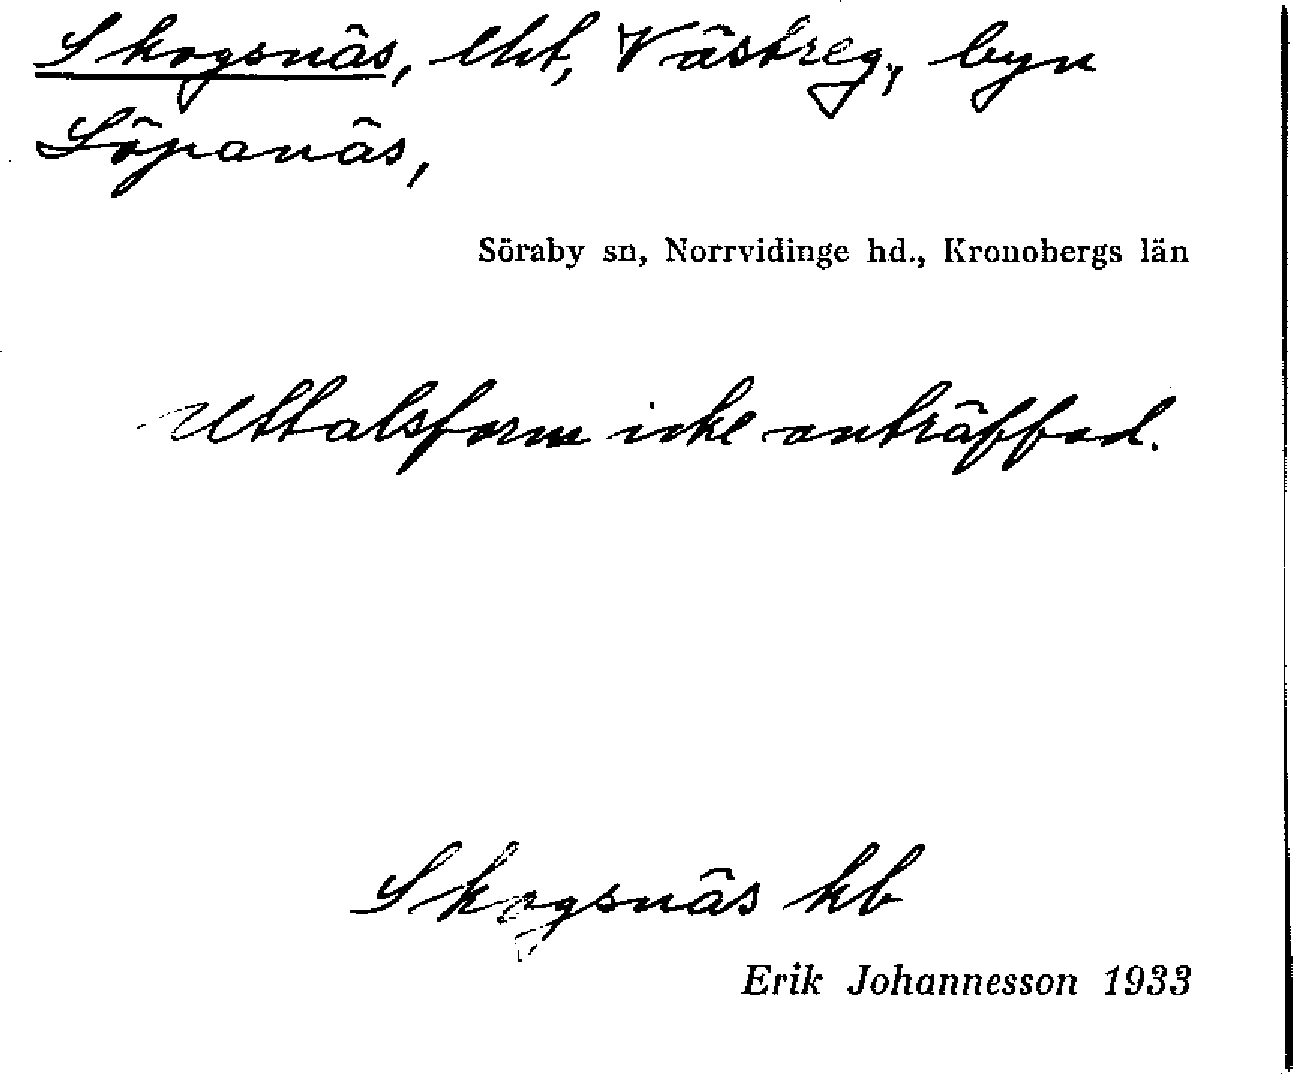 Skogsnäs, lht, Västreg., byn
Söpanäs,
Söraby sn, Norrvidinge hd., Kronobergs län
Uttalsform icke anträffad.
Skogsnäs kb
Erik Johannesson 1933